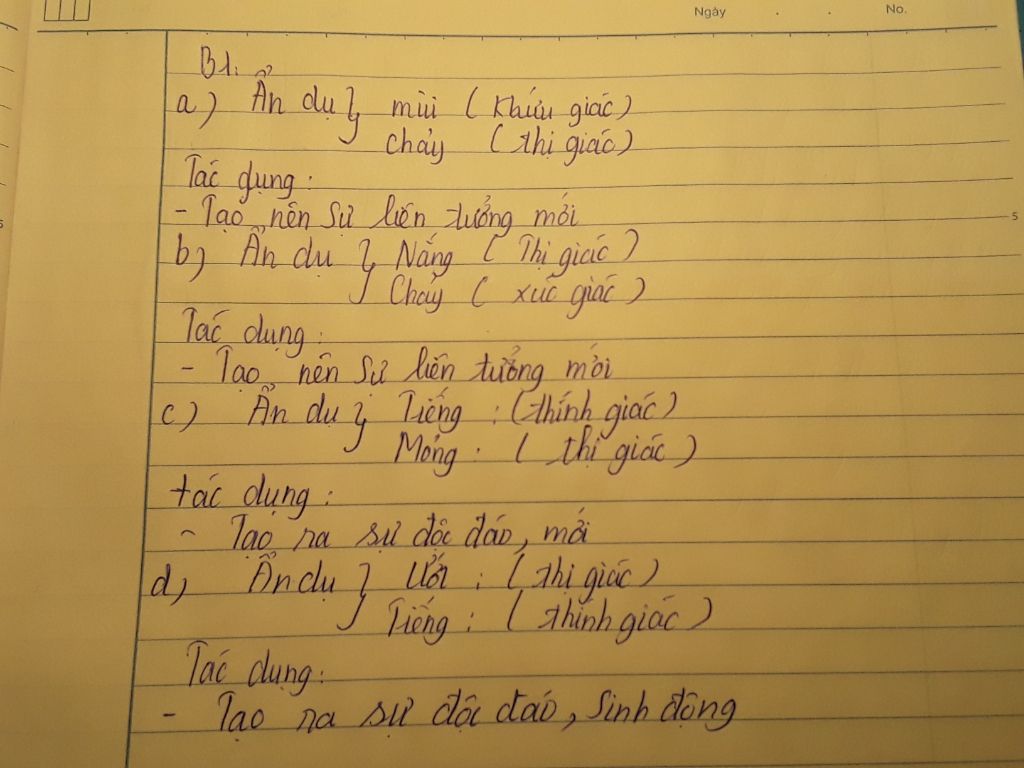 Ngày . . No.
B1:
a) Ẩn dụ } mùi ( Khứu giác )
chảy ( thị giác )
Tác dụng :
- Tạo nên sự liên tưởng mới
5
b) Ẩn dụ } Nắng ( Thị giác )
Chảy ( xúc giác )
Tác dụng :
- Tạo nên sự liên tưởng mới
c) Ẩn dụ } Tiếng : ( thính giác )
Mỏng : ( thị giác )
tác dụng :
- Tạo ra sự độc đáo, mới
d) Ẩn dụ } Ướt : ( thị giác )
Tiếng : ( thính giác )
Tác dụng :
- Tạo ra sự độc đáo, sinh động